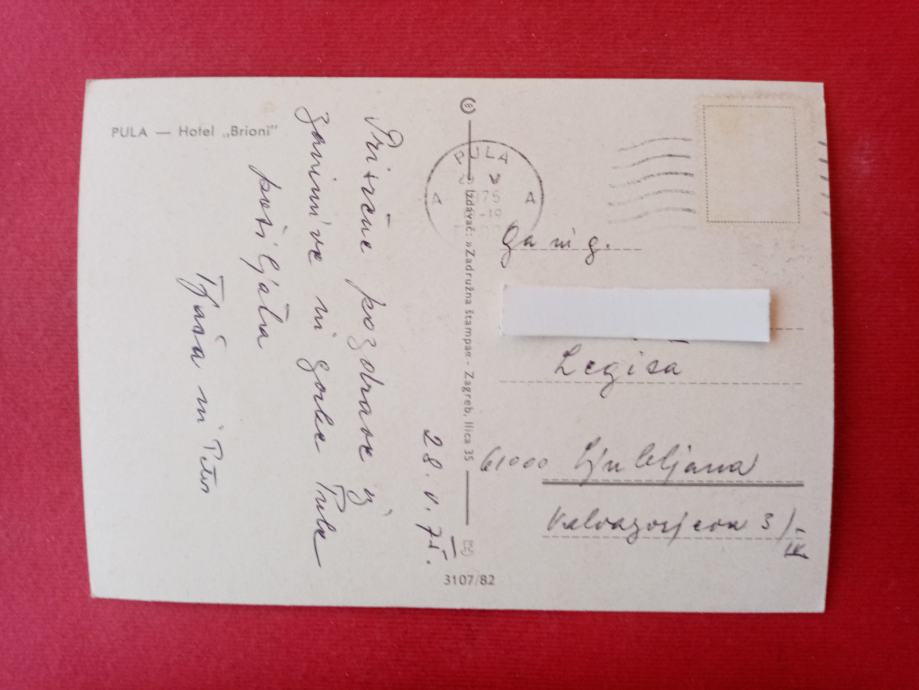 PULA — Hotel „Brioni"
Prisrčne pozdrave iz
zanimive in gorke Pule
pošiljata
Tjaša in Peter
28. V. 75.
PULA
A A
Izdavač: »Zadružna štampa« - Zagreb, Ilica 35
3107/82
Ga in g.
Legiša
61000 Ljubljana
Valvazorjeva 3/-